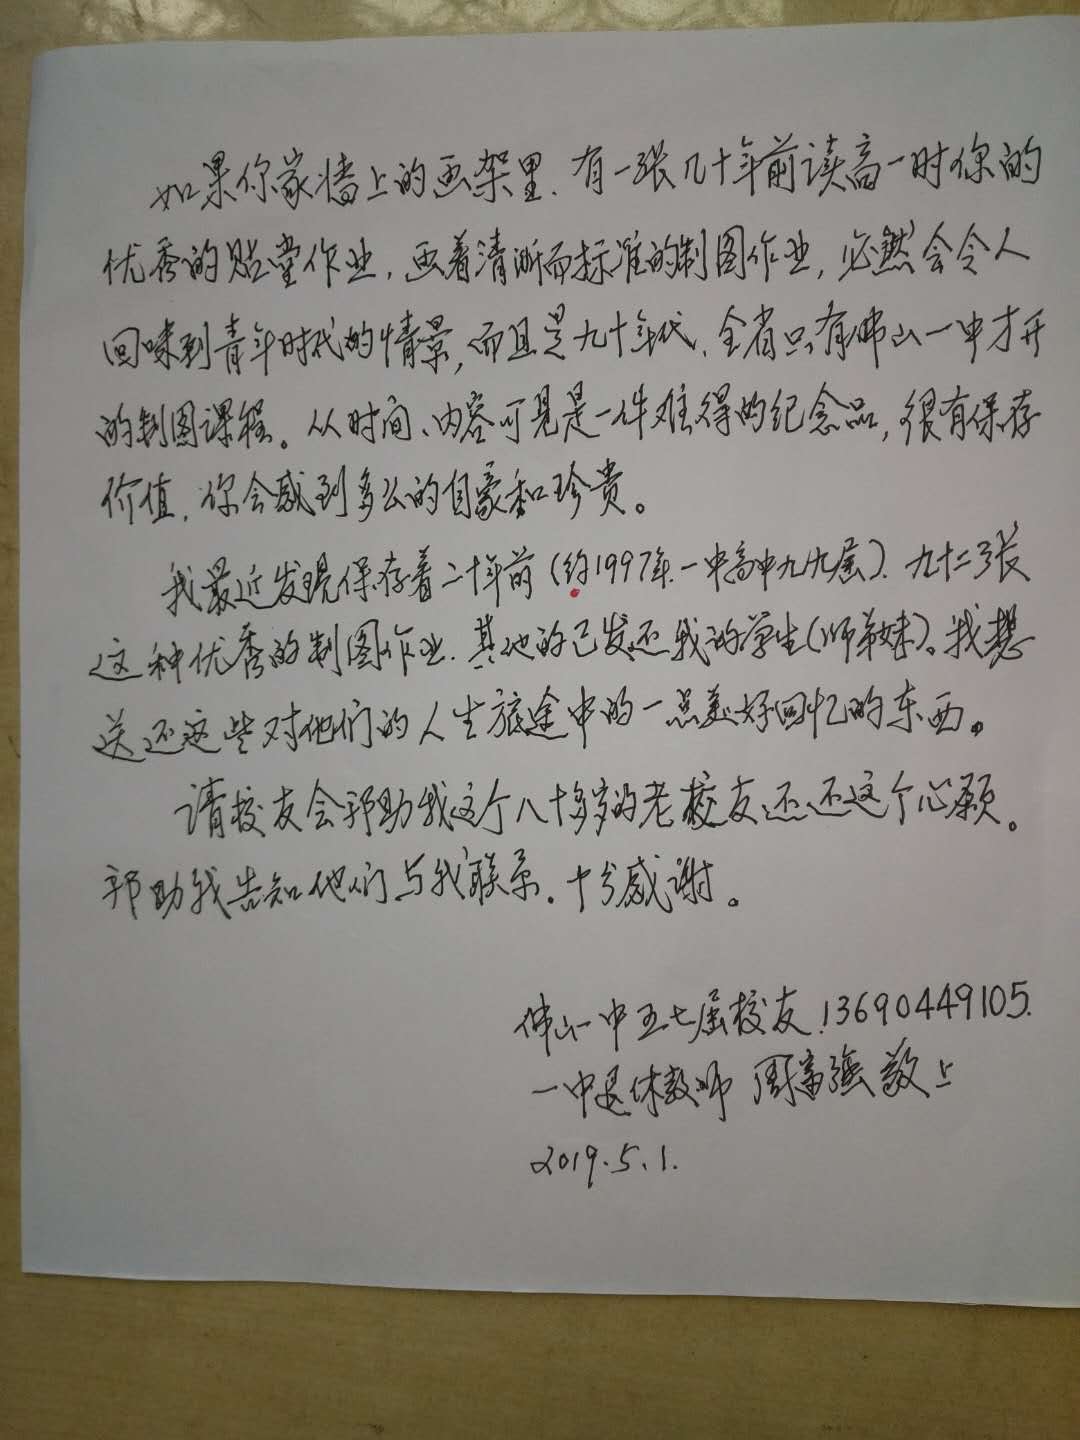 如果你家墙上的画架里、有一张几十年前读高一时你的
优秀的贴堂作业，画着清晰而标准的制图作业，必然会令人
回味到青年时代的情景，而且是九十年代、全省只有佛山一中才开
的制图课程。从时间、内容可见是一件难得的纪念品，很有保存
价值，你会感到多么的自豪和珍贵。
我最近发现保存着二十年前（约1997年.一中高中九九届）.九十二张
这种优秀的制图作业.其他的已发还我的学生（师弟妹）。我想
送还这些对他们的人生旅途中的一点美好回忆的东西。
请校友会邦助我这个八十多岁的老校友还还这个心愿。
邦助我告知他们与我联系.十分感谢。
佛山一中五七届校友.13690449105.
一中退休教师 周富强敬上
2019.5.1.